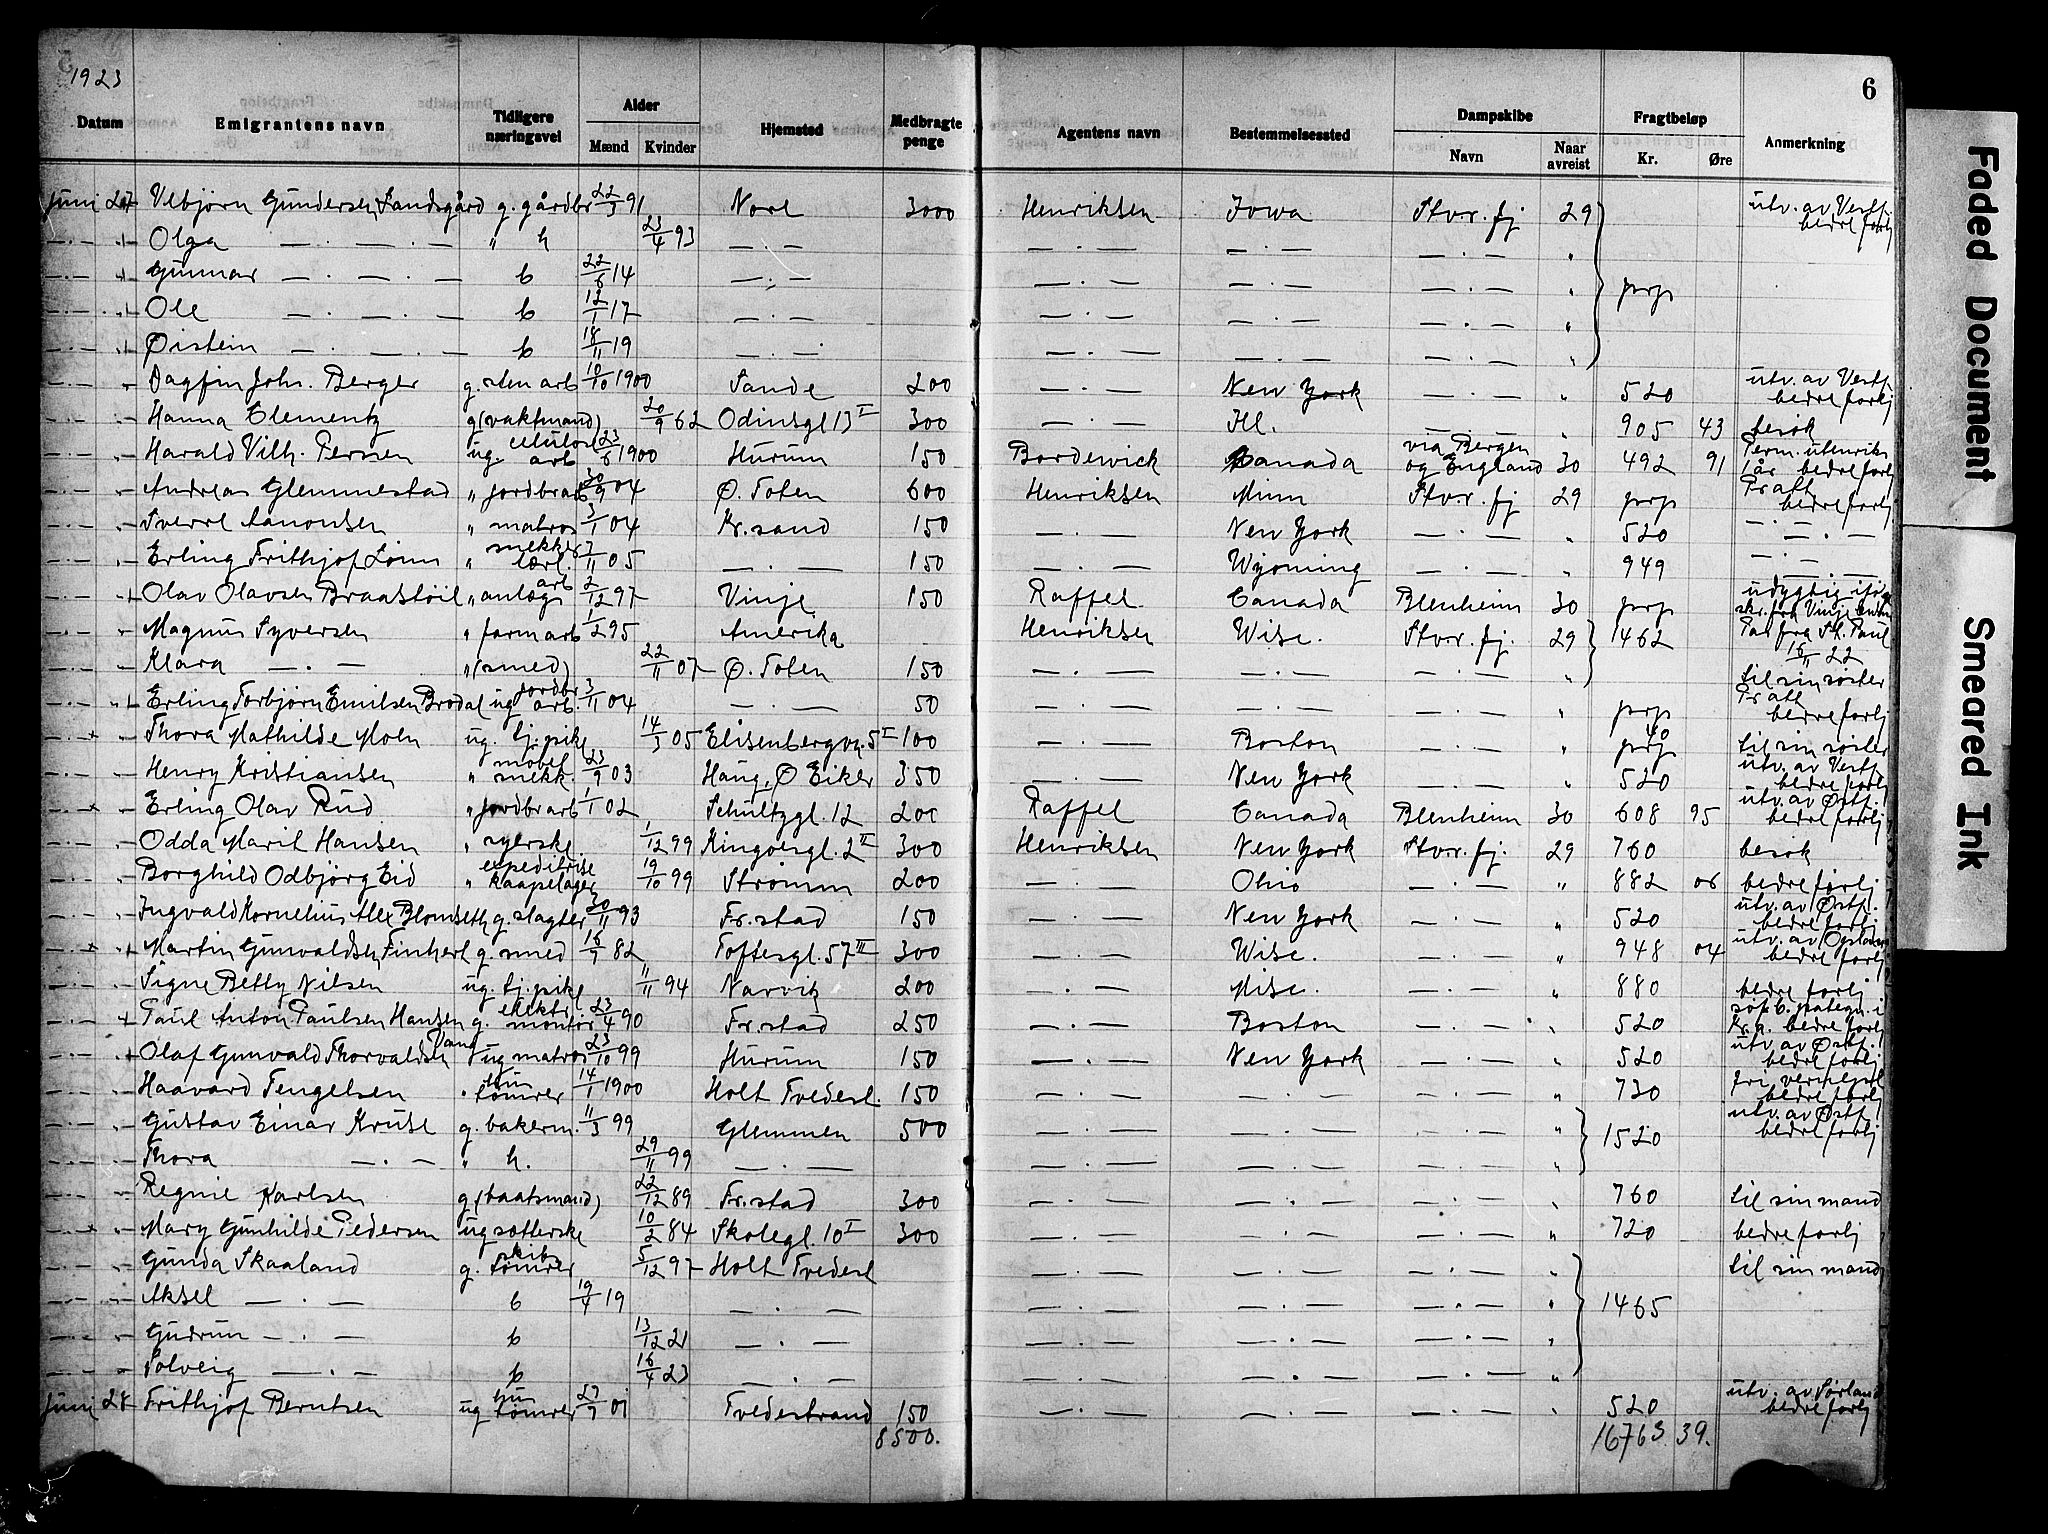 1923
6
Datum Emigrantens navn Tidligere næringsvei Alder Mænd Kvinder Hjemsted Medbragte penge Agentens navn Bestemmelsessted Dampskibe Navn Naar avreist Fragtbeløp Kr. Øre Anmerkning
Juni 27 Vebjörn Gundersen Landsgård g. gårdbr 22/3 91 Nore 3000 Henriksen Iowa Stvr. fj 29 utv. av Vestf. bedre forhj
— · — " Olga — · — · — " h 23/4 93 — · — — · — — · — — · — "
— · — " Gunnar — · — · — b 22/6 14 — · — — · — — · — — · — " prp
— · — " Ole — · — · — b 12/1 17 — · — — · — — · — — · — "
— · — " Øistein — · — · — b 18/11 19 — · — — · — — · — — · — "
— · — " Dagfin Joh. Berger g. sten arb 10/10 1900 Sande 200 — · — New York — · — " 520 utv. av Vestf. bedre forhj
— · — " Hanna Clementz g (vaktmand) 20/9 62 Odinsgt 13 I 300 — · — Ill. — · — " 905 43 besøk
— · — " Harald Vilh. Persen ug. celulose arb 23/6 1900 Hurum 150 Bordewick Canada via Bergen og England 30 492 91 Perm. utenriks 1 år bedre forhj
— · — " Andreas Glemmestad " jordbrarb 30/9 04 Ø. Toten 600 Henriksen Minn Stvr. fj 29 prp Pr att bedre forhj
— · — " Sverre Aanonsen " matros 3/1 04 Kr.sand 150 — · — New York — · — " 520 — · —
— · — " Erling Frithjof Lönn " mekker lærl. 7/11 05 — · — 150 — · — Wyoming — · — " 949 — · —
— · — " Olav Olavsen Braastöil " anlegs arb 2/12 97 Vinje 150 Raffel Canada Blenheim 30 prp udygtig if. skr. fra Vinje
— · — " Magnus Syversen " farm arb 1/2 95 Amerika - Henriksen Wisc. Stvr. fj. 29 1462 Pas fra St. Paul 16/11 22
— · — " Klara — · — " (smed) 22/11 07 Ø. Toten 150 — · — — · — — · — " til sin søster
— · — " Erling Torbjörn Emilsen Brodal ug jordbr arb. 3/11 04 — · — 50 — · — — · — — · — " prp Pr att bedre forhj
— · — " Thora Mathilde Moen ug. tj. pike 14/3 05 Elisenbergvn. 5 I 100 — · — Boston — · — " prp 40 til sin søster
— · — " Henry Kristiansen " møbel snekk 23/9 03 Haug, Ø Eiker 350 — · — New York — · — " 520 utv. av Vestf. bedre forhj
— · — " Erling Olav Rud " jordbrarb 1/1 02 Schultzgt. 12 200 Raffel Canada Blenheim 30 608 95 utv. av Østf. bedre forhj
— · — " Odda Marit Hansen " syerske 1/12 99 Kingosgt. 2 II 300 Henriksen New York Stvr. fj. 29 760 besøk
— · — " Borghild Odbjørg Eid " expeditrise kaapelager 19/10 99 Strømm 200 — · — Ohio — · — " 882 06 bedre forhj
— · — " Ingvald Kornelius Alex Blomseth g. slagter 30/11 93 Fr.stad 150 — · — New York — · — " 520 utv. av Østf. bedre forhj
— · — " Martin Gunvaldsen Finhert g. smed 16/9 82 Toftesgt. 57 III 300 — · — Wisc. — · — " 948 04 utv. av Opland bedre forhj
— · — " Signe Betty Nilsen ug. tj. pike 11/11 94 Narvik 200 — · — Wisc. — · — " 880 bedre forhj
— · — " Paul Anton Paulsen Hansen g. elektr. montør 23/4 90 Fr.stad 250 — · — Boston — · — " 520 Kr.a. bedre forhj
— · — " Olaf Gunvald Thorvaldsen Dang ug matros 23/10 99 Hurum 150 — · — New York — · — " 520 utv. av Østf. bedre forhj
— · — " Haavard Tengelsen " hus tömrer 14/1 1900 Holt Tvedest. 150 — · — — · — — · — " 730 fri vernepl bedre forhj
— · — " Gustav Einar Kruse g. bakerm. 11/3 99 Glemmen 500 — · — — · — — · — " 1520 utv. av Østf. bedre forhj
— · — " Thora — · — " h. 29/11 99 — · — — · — — · — — · — "
— · — " Regnie Karlsen g (baatsmand) 22/12 89 Fr.stad 300 — · — — · — — · — " 760 til sin mand
— · — " Mary Gunhilde Pedersen ug sætterske 10/2 84 Skolegt. 10 I 300 — · — — · — — · — " 720 bedre forhj
— · — " Gunda Skaaland g. skibs tömrer 5/12 97 Holt Tvedest — · — — · — — · — " til sin mand
— · — " Aksel — · — b 19/4 19 — · — — · — — · — — · — " 1465
— · — " Gudrun — · — b 13/12 21 — · — — · — — · — — · — "
— · — " Solveig — · — b 16/4 23 — · — — · — — · — — · — "
Juni 28 Frithjof Berntsen ug hus tömrer 27/7 01 Tvedestrand 150 — · — — · — — · — " 520 utv. av Sørland bedre forhj
8500. 16763 39.
Faded Document
Smeared Ink